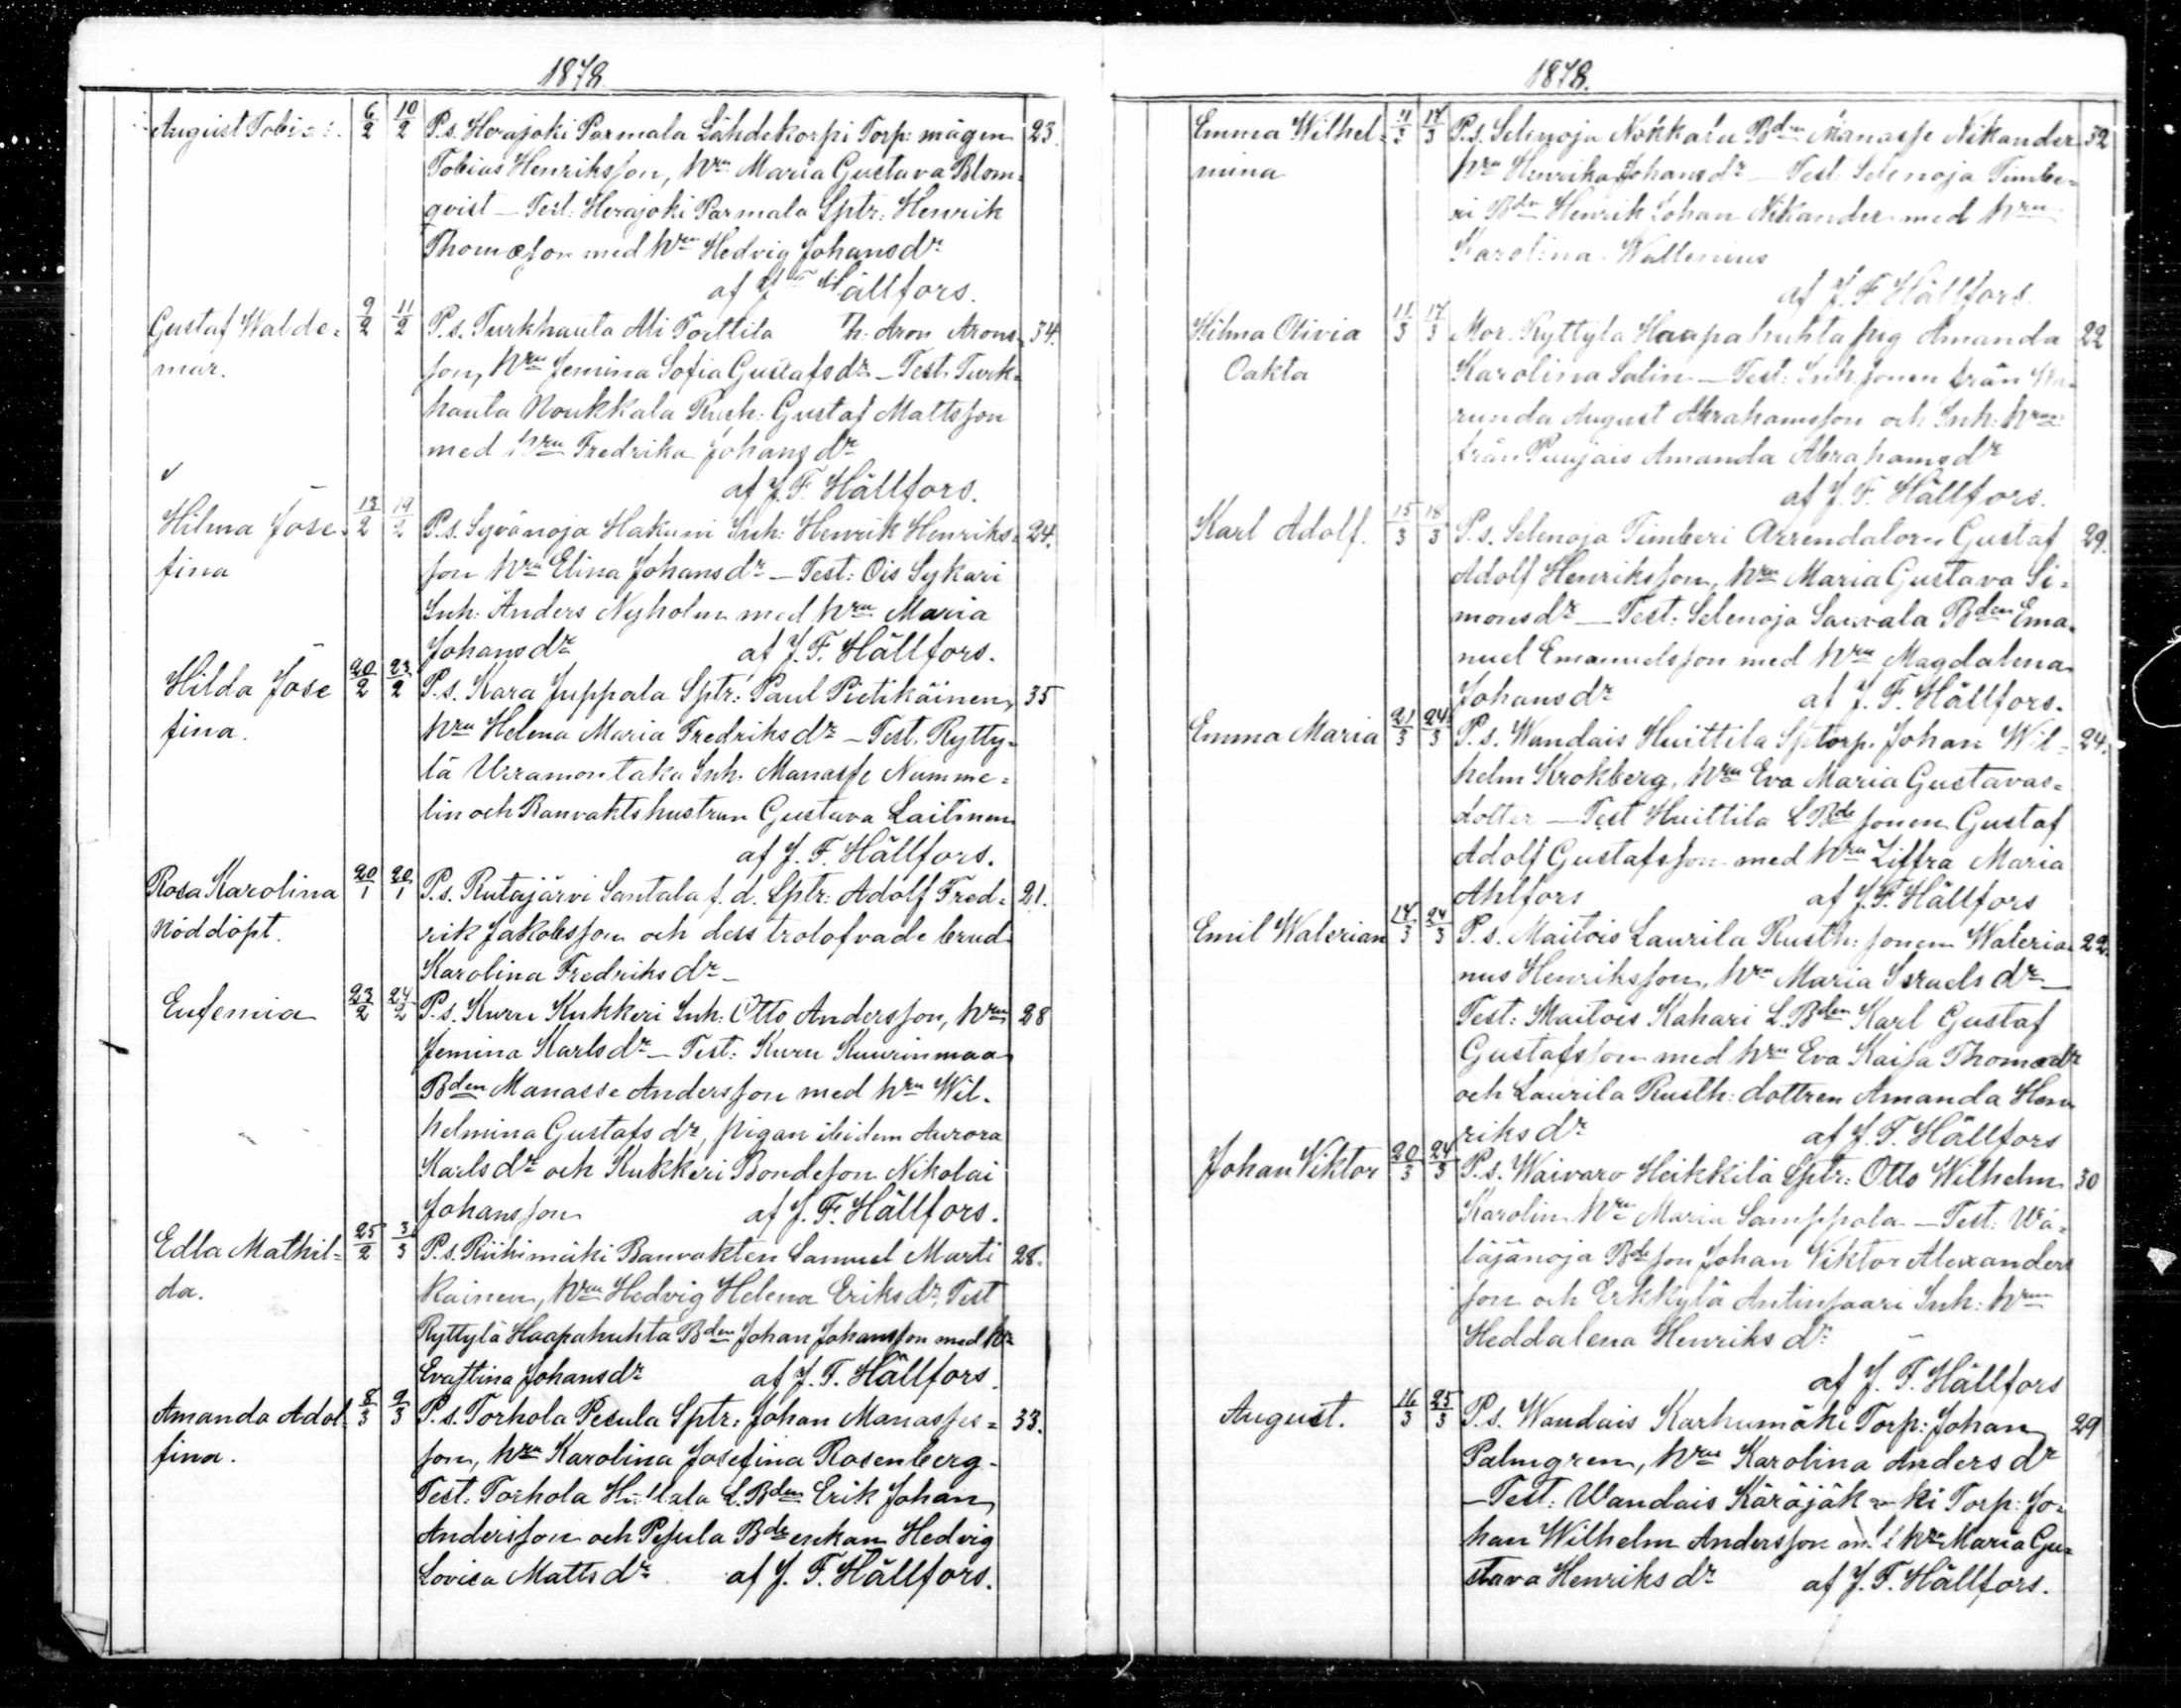 1878.
August Tobias. 6/2 10/2 P.s. Herajoki Parmala Lähdekorpi Torp: mågen 23.
Tobias Henriksson, hru Maria Gustava Blom=
qvist — Test: Herajoki Parmala Sptr: Henrik
Thomæson med hru Hedvig Johansdr
af J F Hällfors.
Gustaf Walde= 9/2 11/2 P.s. Turkhauta Ali Toittila Th: Aron Arons= 34.
mar. son, hru Jemina Sofia Gustafsdr — Test. Turk=
hauta Noukkala Rusth: Gustaf Mattsson
med hru Fredrika Johansdr
af J. F. Hällfors.
Hilma Jose= 13/2 19/2 P.s. Syvänoja Hakuni Inh: Henrik Henriks= 24.
fina son hru Elina Johansdr — Test: Ois Sykari
Inh: Anders Nyholm med hru Maria
Johansdr af J. F. Hällfors.
Hilda Jose 20/2 23/2 P.s. Kara Juppala Sptr: Paul Pietikäinen, 35
fina. hru Helena Maria Fredriksdr — Test. Rytty=
lä Urramontaka Inh. Manasse Numme=
lin och Banvaktshustrun Gustava Laitinen
af J. F. Hällfors.
Rosa Karolina 20/1 20/1 P.s. Rutajärvi Santala f.d. Sptr: Adolf Fred= 21.
Nöddöpt. rik Jakobsson och dess trolofvade brud
Karolina Fredriksdr —
Eufemia 23/2 24/2 P.s. Kuru Kukkeri Inh: Otto Andersson, hru 28
Jemina Karlsdr — Test: Kuru Kuurinmaa
Bden Manasse Andersson med hru Wil=
helmina Gustafsdr, pigan ibidem Aurora
Karlsdr och Kukkeri Bondeson Nikolai
Johansson af J. F. Hällfors.
Edla Mathil= 25/2 3/3 P.s. Riihimäki Banvakten Samuel Marti 28.
da. kainen, hru Hedvig Helena Eriksdr, Test
Ryttylä Haapahuhta Bden Johan Johansson med hr
Evastina Johansdr af J. F. Hällfors.
Amanda Adol 8/3 9/3 P.s. Torhola Pesula Sptr: Johan Manasses= 33.
fina. son, hru Karolina Josefina Rosenberg —
Test: Torhola L. Bden Erik Johan
Andersson och Pesula Bdeenkan Hedvig
Lovisa Mattsdr af J. F. Hällfors.
1878.
Emma Wilhel= 11/3 17/3 P.s. Selenoja Nokkaru Bden Manasse Nikander 32
mina hru Henrika Johansdr — Test. Selenoja Timbe=
ri Bden Henrik Johan Nikander med hru
Karolina Wallenius
af J. F. Hällfors.
Hilma Olivia 11/3 17/3 Mor. Ryttylä Haapahuhta pig Amanda 22
Oakta Karolina Salin — Test: Inh. sonen från
runda August Abrahamsson och Inh: hru
från Puujais Amanda Abrahamsdr
af J. F. Hällfors.
Karl Adolf. 15/3 18/3 P.s. Selenoja Timberi Arrendatorn Gustaf 29.
Adolf Henriksson, hru Maria Gustava Si=
monsdr — Test: Selenoja Sauvala Bden Ema=
nuel Emanuelsson med hru Magdalena
Johansdr af J. F. Hällfors.
Emma Maria 21/3 24/3 P.s. Wandais Huittila Sptorp. Johan Wil= 24.
helm Krokberg, hru Eva Maria Gustavas=
dotter — Test Huittila L Bde sonen Gustaf
Adolf Gustafsson med hru Ziffra Maria
Ahlfors af J. F. Hällfors
Emil Walerian 17/3 24/3 P.s. Maitois Laurila Rusth: sonen Waleria= 22.
nus Henriksson, hru Maria Israelsdr —
Test: Maitois Kahari L. Bden Karl Gustaf
Gustafsson med hru Eva Kaisa Thomædr
och Laurila Rusth: dottren Amanda Hen
riksdr af J. F. Hällfors
Johan Viktor 20/3 24/3 P.s. Waivaro Heikkilä Sptr: Otto Wilhelm 30
Karolin hru Maria Samppala — Test: Wä=
läjänoja Bdeson Johan Viktor Alexanders
son och Erkkylä Antinsaari Inh: hru
Heddalena Henriksdr
af J. F. Hällfors
August. 16/3 25/3 P.s. Wandais Karhumäki Torp: Johan 29
Palmgren, hru Karolina Andersdr
— Test: Wandais Torp: Jo=
han Wilhelm Andersson med hru Maria Gu=
stava Henriksdr af J. F. Hällfors.